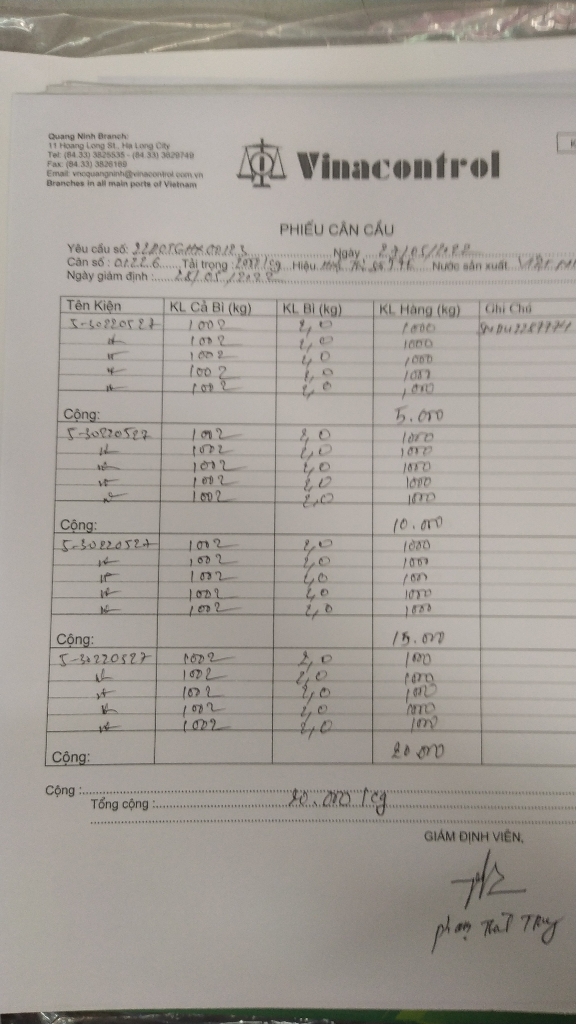 Quang Ninh Branch:
11 Hoang Long St., Ha Long City
Tel: (84.33) 3825535 - (84.33) 3829749
Fax: (84.33) 3826169
Email: vncquangninh@vinacontrol.com.vn
Branches in all main ports of Vietnam
Vinacontrol
PHIẾU CÂN CẨU
Yêu cầu số: Ngày 27/05/2022
Cân số: 01226 Tải trọng: Hiệu Nước sản xuất
Ngày giám định: 28/05/2022
Tên Kiện KL Cả Bì (kg) KL Bì (kg) KL Hàng (kg) Ghi Chú
5-30220527 1002 2,0 1000
1002 2,0 1000
1002 2,0 1000
1002 2,0 1000
1002 2,0 1000
Cộng: 5.000
5-30220527 1002 2,0 1000
1002 2,0 1000
1002 2,0 1000
1002 2,0 1000
1002 2,0 1000
Cộng: 10.000
5-30220527 1002 2,0 1000
1002 2,0 1000
1002 2,0 1000
1002 2,0 1000
1002 2,0 1000
Cộng: 15.000
5-30220527 1002 2,0 1000
1002 2,0 1000
1002 2,0 1000
1002 2,0 1000
1002 2,0 1000
Cộng: 20.000
Cộng:
Tổng cộng: 20.000 kg
GIÁM ĐỊNH VIÊN,
phạm